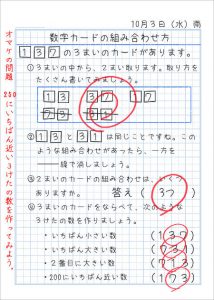 10月3日(水) 雨
数字カードの組み合わせ方
1 3 7 の3まいのカードがあります。
①3まいの中から、2まい取ります。取り方を
たくさん書いてみましょう。
1 3 3 7 1 7
②1 3 と 3 1 は同じことですね。この
ような組み合わせがあったら、一方を
━━線で消しましょう。
③2まいのカードの組み合わせは、いくつ
ありますか。 答え( 3つ )
④3まいのカードをならべて、次のような
3けたの数を作りましょう。
・いちばん小さい数 (137)
・いちばん大きい数 (731)
・2番目に大きい数 (713)
・200にいちばん近い数 (173)
オマケの問題
250にいちばん近い3けたの数を作ってみよう。